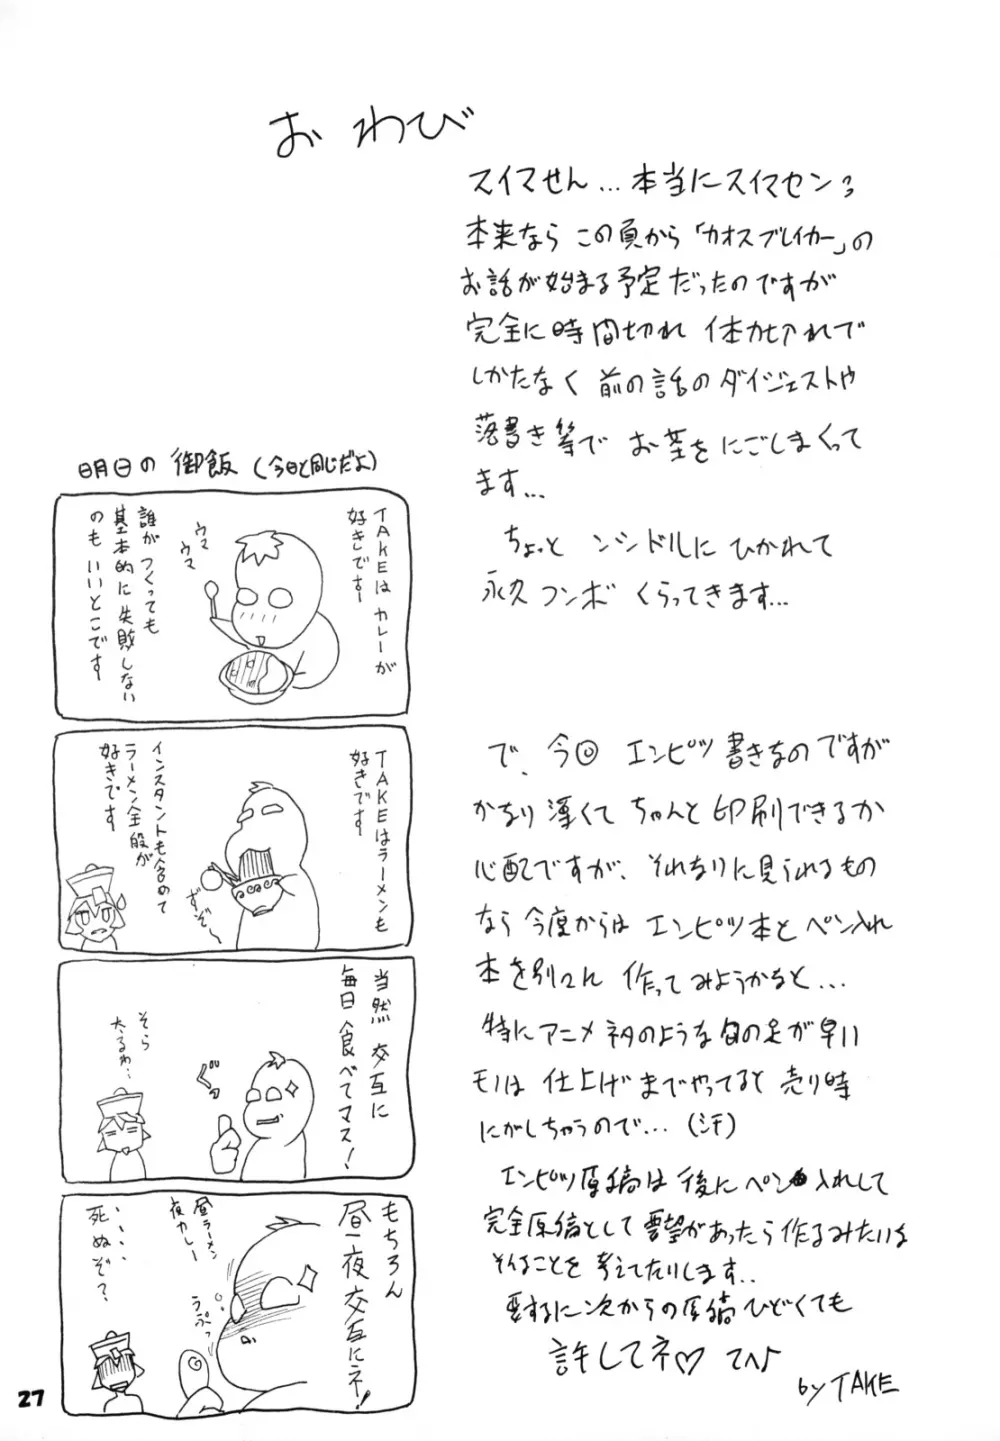 おわび
スイマせん…本当にスイマセン
本来なら この頁から「カオスブレイカー」の
お話が始まる予定だったのですが
完全に時間切れ 体力切れで
しかたなく 前の話のダイジェストや
落書き等で お茶をにごしまくって
ます…
ちょっと ンシドルに ひかれて
永久コンボ くらってきます…
で、今回 エンピツ書きなのですが
かなり薄くて ちゃんと印刷できるか
心配ですが、それなりに見られるもの
なら今度からは エンピツ本とペン入れ
本を別々に 作ってみようかなと…
特にアニメネタのような旬の足が早い
モノは 仕上げまでやってると 売り時
にがしちゃうので…(汗)
エンピツ原稿は後にペン入れして
完全原稿として要望があったら作るみたいな
そんなことを 考えてたりします..
要するに次からの原稿ひどくても
許してネ♡ てへ♪
by TAKE
明日の御飯(今日と同じだよ)
TAKEはカレーが
好きです
ウマ
ウマ
誰がつくっても
基本的に失敗しない
のもいいとこです
TAKEはラーメンも
好きです
ずぞー
インスタントも含めて
ラーメン全般が
好きです
当然交互に
毎日食べてマス!
ぐっ
そら
太るわ…
もちろん
昼・夜交互にネ!
昼ラーメン
夜カレー
うぷっ
・・・・
死ぬぞ?
27